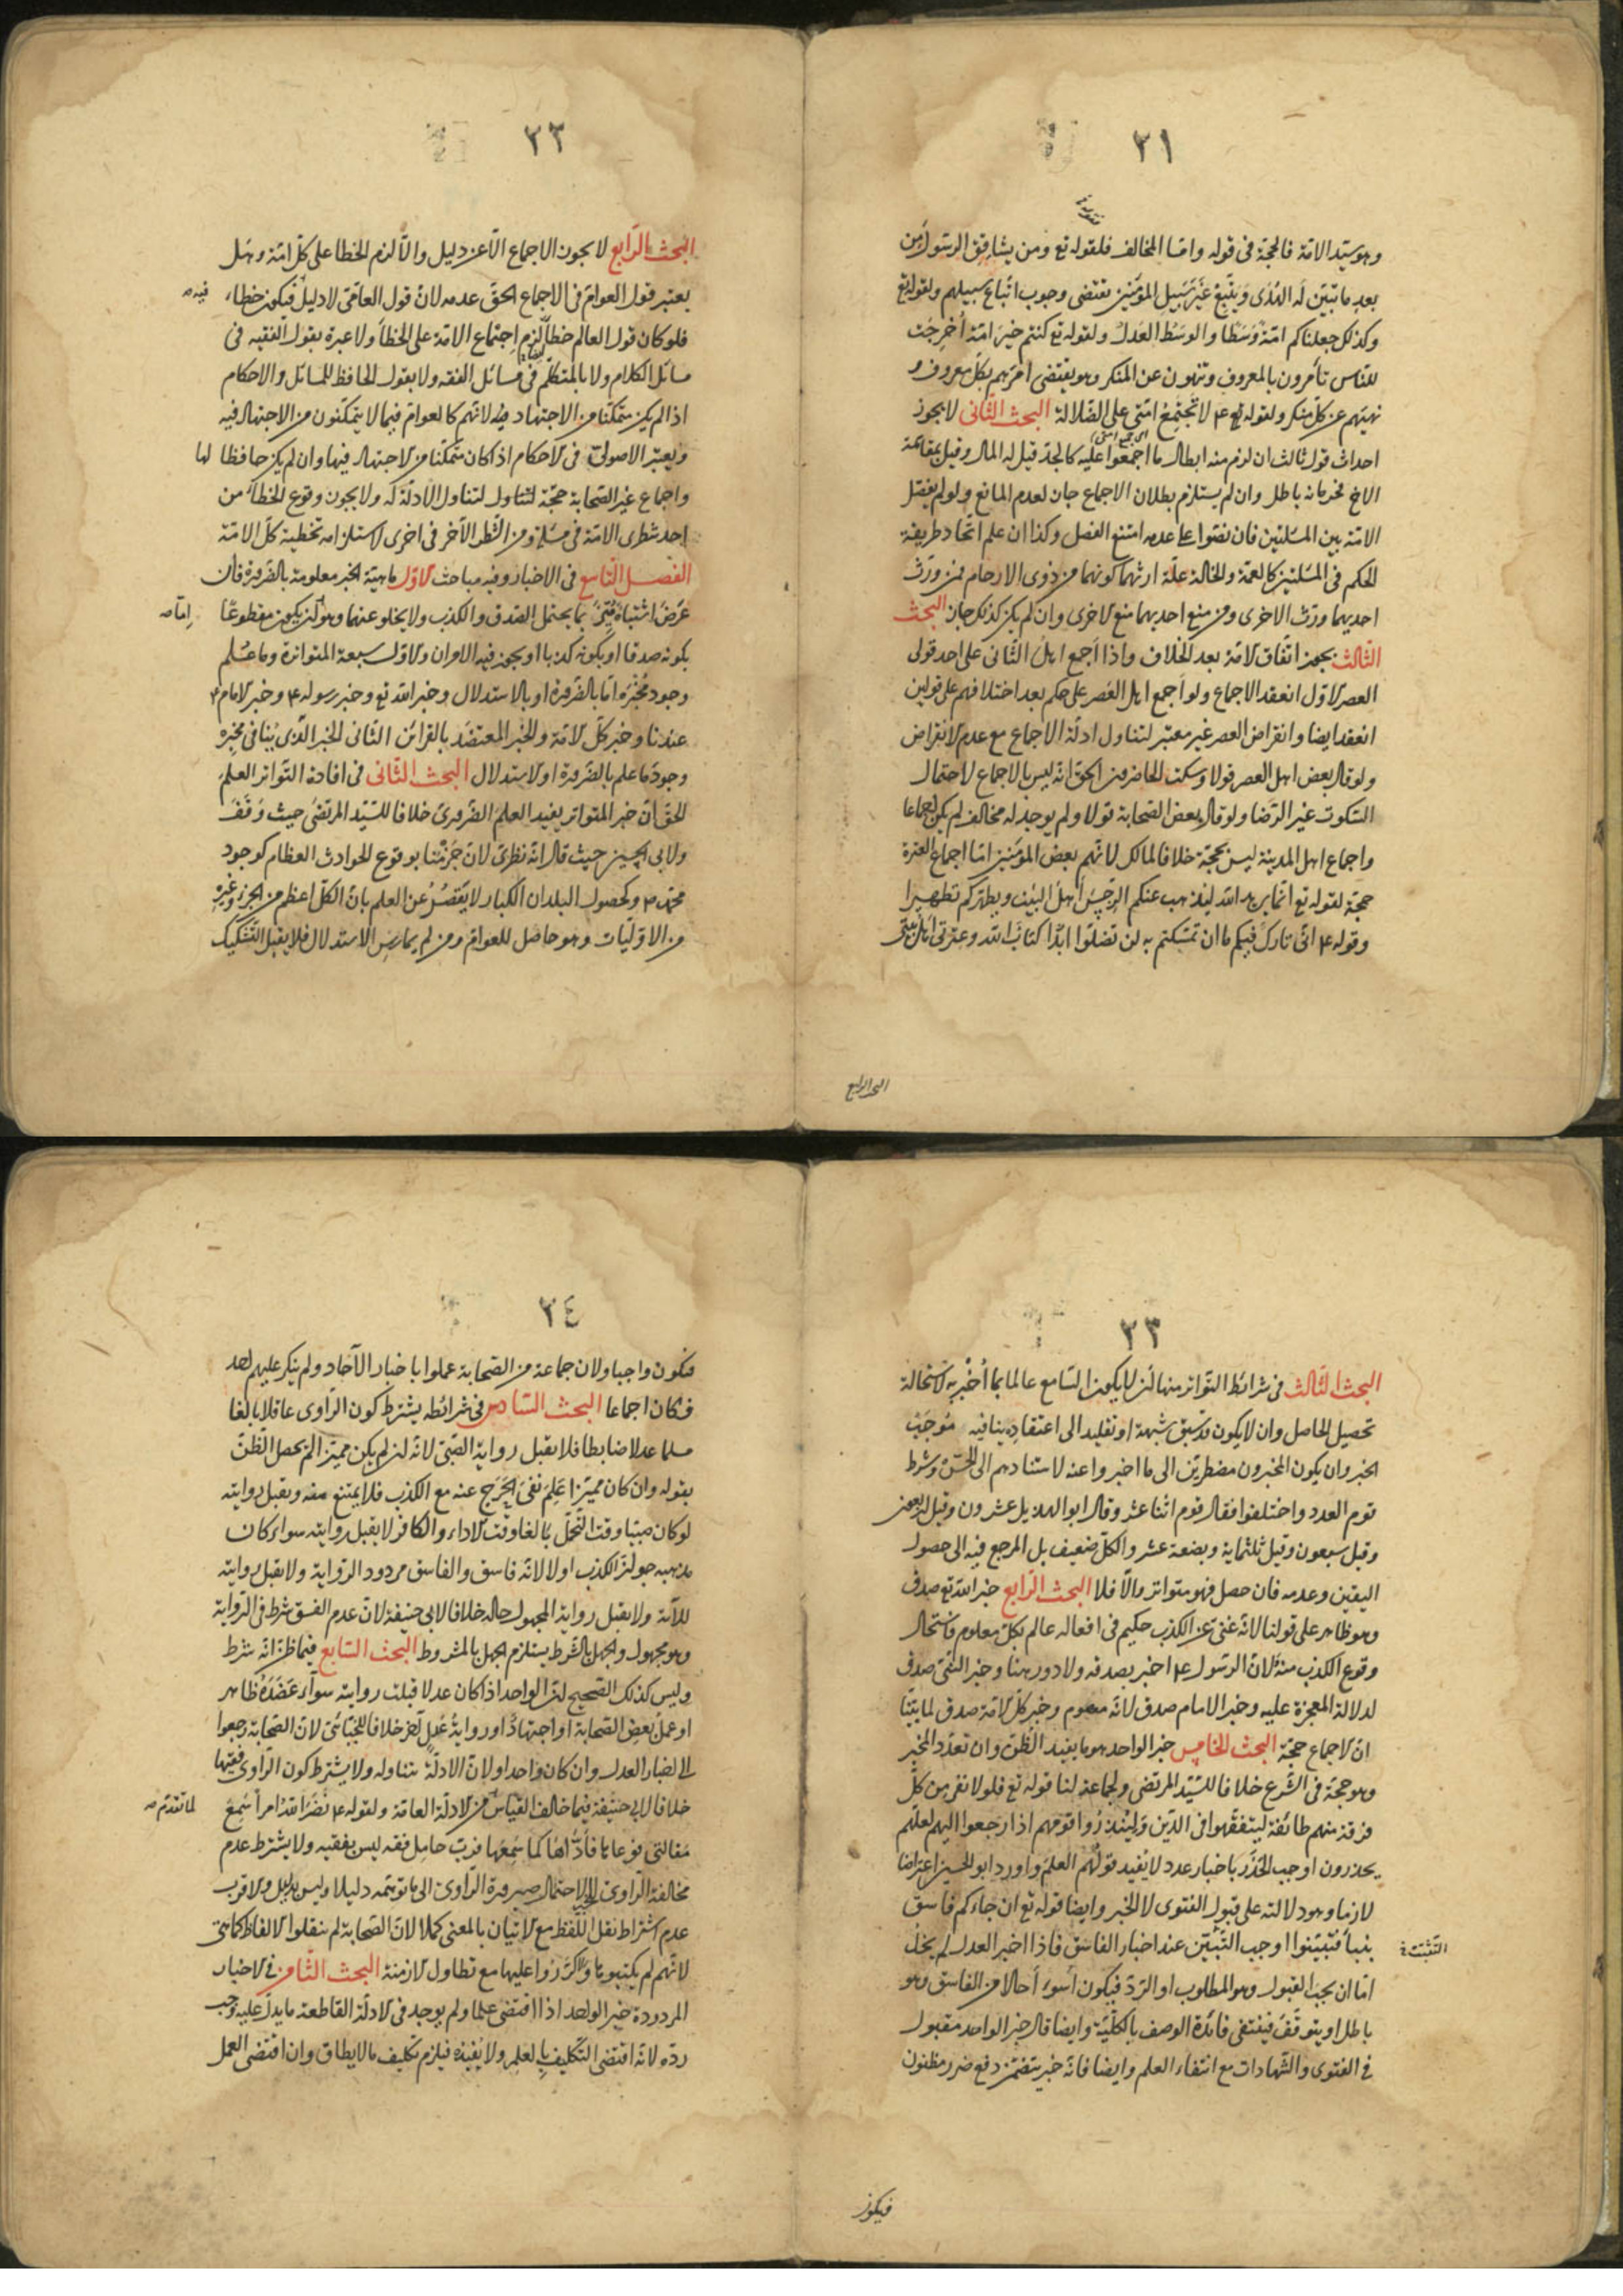 ٢١
وهو سيّد الامّة فالحجة فى قوله وامّا المخالف فلقوله تع ومن يشاقق الرسول من
بعد ما تبيّن له الهدى ويتّبع غير سبيل المؤمنين يقتضى وجوب اتّباع سبيلهم ولقوله تع
وكذلك جعلناكم امّة وَسَطا والوسَط العَدل ولقوله تع كنتم خيرَ امّة اُخرِجَت
للنّاس تأمرون بالمعروف وتنهون عن المنكر وهو يقتضى امرهم بكلّ معروف و
نهيهم عن كلّ منكر ولقوله ع لا تجتمِع امّتى على الضّلالة البحث الثّانى لا يجوز
احداث قول ثالث ان لزم منه ابطال ما اجمعوا عليه كالجدّ قيل له المال وقيل يقاسمه
الاخ فحرمانه باطل وان لم يستلزم بطلان الاجماع جاز لعدم المانع ولو لم يفصّل
الامّة بين المسئلتين فان نصّوا على عدمه امتنع الفصل وكذا ان علم اتّحاد طريقة
الحكم فى المسئلتين كالعمّة والخالة علّة ارثهما كونهما من ذوى الارحام فمن ورّث
احديهما ورّث الاخرى ومن منع احديهما منع الاخرى وان لم يكن كذلك جاز البحث
الثّالث يجوز اتّفاق الامّة بعد الخلاف واذا اجمع اهلُ الثّانى على احد قولى
العصر الاوّل انعقد الاجماع ولو اجمع اهل العصر على حكم بعد اختلافهم على قولين
انعقد ايضا وانقراض العصر غير معتبر لتناول ادلّة الاجماع مع عدم الانقراض
ولو قال بعض اهل العصر قولا وسكت الحاضرون الحقّ انّه ليس بالاجماع لاحتمال
السّكوت غير الرّضا ولو قال بعض الصّحابة قولا ولم يوجد له مخالف لم يكن اجماعا
واجماع اهل المدينة ليس بحجّة خلافا لمالك لانّهم بعض المؤمنين امّا اجماع العترة
حجّة لقوله تع انّما يريد الله ليذهب عنكم الرّجسَ اهلَ البيت ويطهّركم تطهيرا
وقوله ع انّى تارك فيكم ما ان تمسّكتم به لن تضلّوا ابدًا كتابَ الله وعترتى اهل بيتى
البحث الرابع
٢٢
البحث الرّابع لا يجوز الاجماع الّا عن دليل والّا لزم الخطا على كلّ امّة وهل
يعتبر قول العوامّ فى الاجماع الحقّ عدمه لانّ قول العامّى لا دليل فيكون خطاء، فيه صه
فلو كان قول العالم خطأ لزم اجتماع الامّة على الخطأ ولا عبرة بقول الفقيه فى
مسائل الكلام ولا بالمتكلّم فى مسائل الفقه ولا بقول الحافظ للمسائل والاحكام
اذا لم يكن متمكّنا من الاجتهاد فيه لانّهم كالعوامّ فيما لا يتمكّنون من الاجتهاد فيه
ويعتبر الاصولىّ فى الاحكام اذا كان متمكّنا من الاجتهاد فيها وان لم يكن حافظا لها
واجماع غير الصّحابة حجّة لتناول الادلّة له ولا يجوز وقوع الخطأ من
احد شطرى الامّة فى مسئلة ومن الشّطر الآخر فى اخرى لاستلزامه تخطية كلّ الامّة
الفصل التّاسع فى الاخبار وفيه مباحث الاوّل ماهيّة الخبر معلومة بالضّرورة فان
عَرَضَ اشتباه مُيّز بما يحتمل الصّدق والكذب ولا يخلو عنهما وهو لن يكون مقطوعًا امّا صه
بكونه صدقا او بكونه كذبا او يجوز فيه الامران والاوّل سبعة المتواترة وما عُلم
وجود مُخبَره امّا بالضّرورة او بالاستدلال وخبر الله تع وخبر رسوله ع وخبر الامام ع
عندنا وخبر كلّ الامّة والخبر المعتضد بالقرائن الثّانى الخبر الّذى يُنافى مخبره
وجود ما علم بالضّرورة او الاستدلال البحث الثّانى فى افادة التّواتر العلم
الحقّ انّ خبر المتواتر يفيد العلم الضّرورىّ خلافا للسّيّد المرتضى حيث وَقَفَ
ولابى الحسين حيث قال انّه نظرىّ لانّ جَزْمَنا بوقوع الحوادث العظام كوجود
محمّد ع وكحصول البلدان الكبار لا يَقصُرُ عن العلم بانّ الكلّ اعظم من الجزء وغيره
من الاوّليّات وهو حاصل للعوامّ ومن لم يمارسِ الاستدلال فلا يقبل التّشكيك
٢٣
البحث الثّالث فى شرائط التّواتر منها ان لا يكون السّامع عالما بما اُخْبِر به لاستحالة
تحصيل الحاصل وان لا يكون قد سبق شبهة او تقليد الى اعتقادٍ ينافيه مُوجَبَ
الخبر وان يكون المخبرون مضطرّين الى ما اخبروا عنه لاستنادهم الى الحسّ وشرط
قوم العدد واختلفوا فقال قوم اثنا عشر وقال ابو الهذيل عشرون وقيل اربعون
وقيل سبعون وقيل ثلثماية وبضعة عشر والكلّ ضعيف بل المرجع فيه الى حصول
اليقين وعدمه فان حصل فهو متواتر والّا فلا البحث الرّابع خبر الله تع صدق
وهو ظاهر على قولنا لانّه غنىّ عن الكذب حكيم فى افعاله عالم بكلّ معلوم فاستحال
وقوع الكذب منه ولانّ الرّسول ع اخبر بصدقه ولا دور هنا وخبر النّبى صدق
لدلالة المعجزة عليه وخبر الامام صدق لانّه معصوم وخبر كلّ الامّة صدق لما بيّنّا
انّ الاجماع حجّة البحث الخامس خبر الواحد هو ما يفيد الظّنّ وان تعدّد المخبر
وهو حجّة فى الشّرع خلافا للسّيّد المرتضى ولجماعة لنا قوله تع فلو لا نفر من كلّ
فرقة منهم طائفة ليتفقّهوا فى الدّين ولينذرُوا قومهم اذا رجعوا اليهم لعلّهم
يحذرون اوجب الحَذَر باخبار عدد لا يُفيد قولُهم العلمَ واورد ابو الحسين اعتراضا
لازما وهو دلالته على قبول الفتوى لا الخبر وايضا قوله تع ان جاءكم فاسق
بنبأ فتبيّنوا اوجب التّبيّن عند اخبار الفاسق فاذا اخبر العدل لم يخل التّثبّت خ
امّا ان يجب القبول وهو المطلوب او الرّدّ فيكون اَسوء اَحالا من الفاسق وهو
باطل او يتوقّف فينتفى فائدة الوصف بالكلّيّة وايضا قال خبر الواحد مقبول
فى الفتوى والشّهادات مع انتفاء العلم وايضا فانّه خبر يتضمّن دفع ضرر مظنون
فيكون
٢٤
فيكون واجبا ولان جماعة من الصّحابة عملوا باخبار الآحاد ولم ينكر عليهم احد
فكان اجماعا البحث السّادس فى شرائطه يشترط كون الرّاوى عاقلا بالغا
مسلما عدلا ضابطا فلا يقبل رواية الصّبىّ لانّه ان لم يكن مميّزا لم يحصل الظّنّ
بقوله وان كان مميّزا عَلِمَ نفىَ الحَرَج عنه مع الكذب فلا يمتنع منه ويقبل روايته
لو كان صبيّا وقت التّحمّل بالغا وقت الاداء والكافر لا يقبل روايته سواء كان
مذهبه جواز الكذب اولا لانّه فاسق والفاسق مردود الرّواية ولا يقبل روايته
للآية ولا يقبل رواية المجهول حاله خلافا لابى حنيفة لانّ عدم الفسق شرط فى الرّواية
وهو مجهول والجهل بالشّرط يستلزم الجهل بالمشروط البحث السّابع فيما ظنّ انّه شرط
وليس كذلك الصّحيح انّ الواحد اذا كان عدلا قبلت روايته سوآء عَضَدَه ظاهر
او عمل بعض الصّحابة او اجتهادٌ او رواية عدلٍ آخر خلافا للجبّائى لانّ الصّحابة رجعوا
الى اخبار العدل وان كان واحدا ولانّ الادلّة تتناوله ولا يشترط كون الرّاوى فقيها
خلافا لابى حنيفة فيما خالف القياس من الادلّة العامّة ولقوله ع نضّر الله امرأ سَمِعَ لما تقدّم صه
مقالتى فوعاها فأدّاها كما سَمِعَها فربّ حامل فقه ليس بفقيه ولا يشترط عدم
مخالفة الرّاوى لاحتمال صيرورة الرّاوى الى ما توهّمه دليلا وليس بدليل والاقرب
عدم اشتراط نقل اللّفظ مع الاتيان بالمعنى كملا لانّ الصّحابة لم ينقلوا الالفاظ كما هى
لانّهم لم يكتبوها ولا كرّروا عليها مع تطاول الازمنة البحث الثّامن فى الاخبار
المردودة خبر الواحد اذا اقتضى علما ولم يوجد فى الادلّة القاطعة ما يدلّ عليه وجب
ردّه لانّه اقتضى التّكليف بالعلم ولا يُفيده فيلزم تكليف ما لا يطاق وان اقتضى العمل